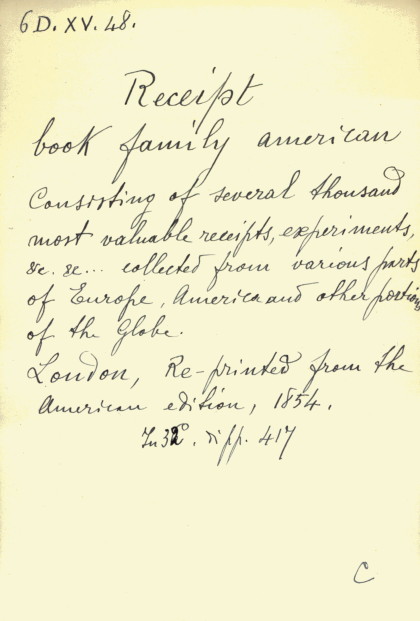 6 D. XV. 48.
Receipt
book family american
Consisting of several thousand
most valuable receipts, experiments,
&c. &c... collected from various parts
of Europe, America and other portions
of the Globe.
London, Re-printed from the
American edition, 1854.
In 32°. di pp. 417
C